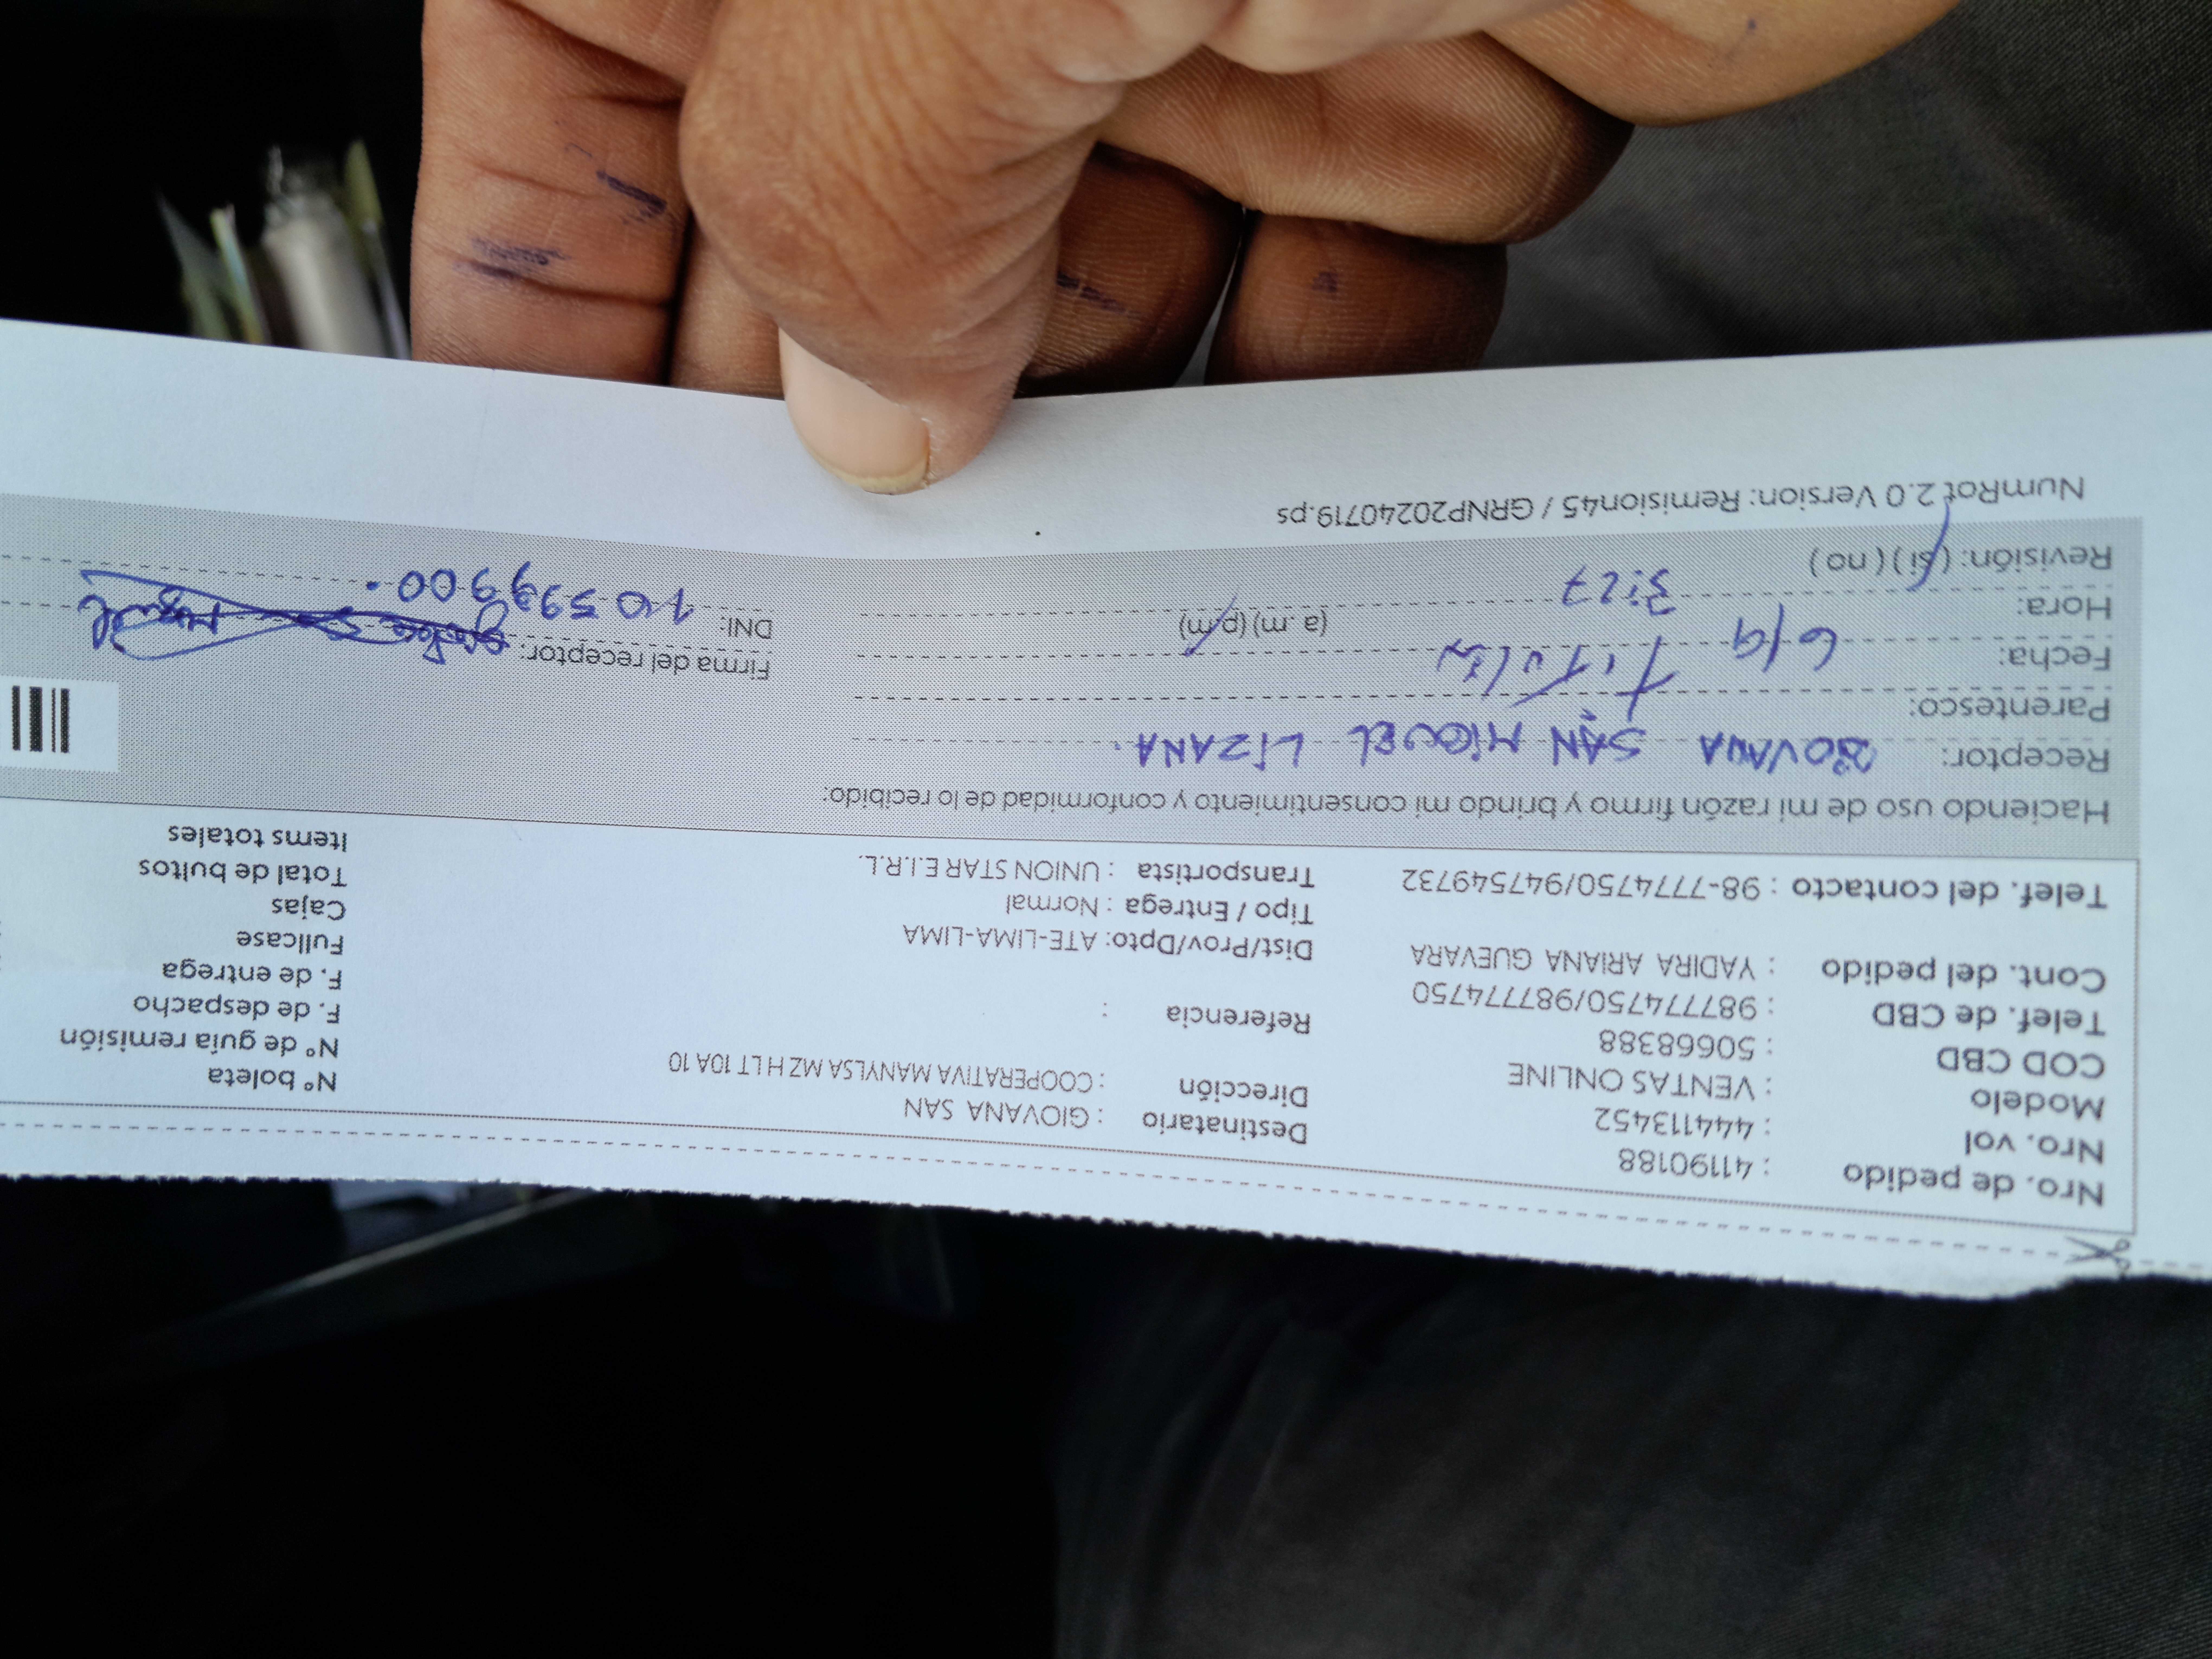 Nro. de pedido : 41190188
Nro. vol : 444113452
Modelo : VENTAS ONLINE
COD CBD : 50668388
Telef. de CBD : 987774750/987774750
Cont. del pedido : YADIRA ARIANA GUEVARA
Telef. del contacto : 98-7774750/947549732
Destinatario : GIOVANA SAN
Dirección : COOPERATIVA MANYLSA MZ H LT 10A 10
Referencia :
Dist/Prov/Dpto: ATE-LIMA-LIMA
Tipo / Entrega : Normal
Transportista : UNION STAR E.I.R.L.
N° boleta
N° de guía remisión
F. de despacho
F. de entrega
Fullcase
Cajas
Total de bultos
Items totales
Haciendo uso de mi razón firmo y brindo mi consentimiento y conformidad de lo recibido:
Receptor: SAN MIGUEL LIZANA.
Parentesco: Titular
Fecha: 6/9
Hora: 3:27 (a.m) (p.m)
Revisión: (si) (no)
Firma del receptor:
DNI:
NumRot 2.0 Version: Remision45 / GRNP20240719.ps